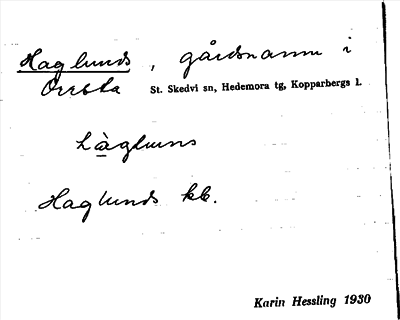 Haglunds, gårdsnamn i
Orrsta St. Skedvi sn, Hedemora tg, Kopparbergs l.
hàgluns
Haglunds kb.
Karin Hessling 1930